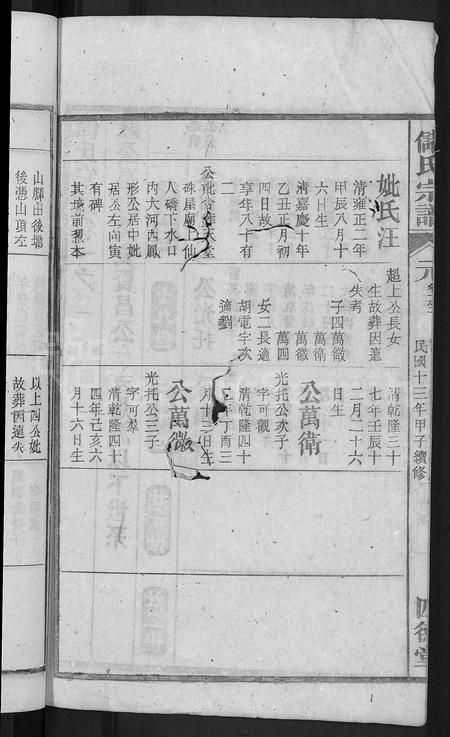 儲氏宗譜
民國十三年甲子續修
妣氏汪
清雍正二年
甲辰八月十
六日生
清嘉慶十年
乙丑正月初
四日故
享年八十有
二
硃星廟上仙
人磅下水口
內大河西鳳
形公居中妣
居公左向寅
有碑
其墳前親本
超上公長女
生故葬因遠
失考
子四萬徵
萬衛
萬四
女二長適
胡電宇次
適劉
清乾隆三十
七年壬辰十
二月二十六
日生
公萬衛
光托公次子
字可觀
清乾隆四十
二年丁酉三
月十三日生
公萬徵
光托公三子
字可羣
清乾隆四十
四年己亥六
月十六日生
山腳田後塝
後憑山頂左
以上四公妣
故葬因遠失